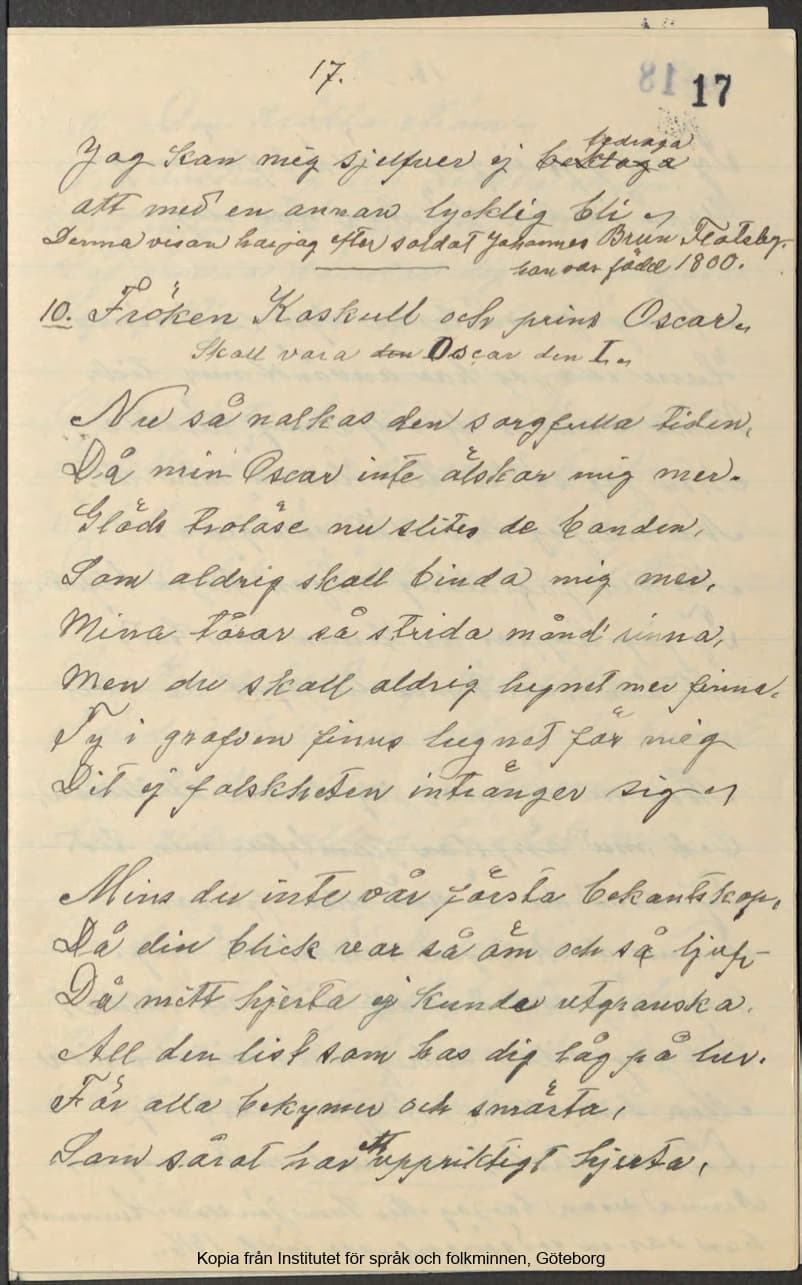 17.
18 17
Jag kan mig sjelfver ej bedraga
att med en annan lycklig bli
Denna visan har jag efter soldat Johannes Brun Flatsby.
han var född 1800.
10. Fröken Kaskull och prins Oscar.
Skall vara den Oscar den I.
Nu så nalkas den sorgfulla tiden,
Då min Oscar inte älskar mig mer.
Gläds trolöse nu slites de banden,
Som aldrig skall binda mig mer,
Mina tårar så strida månd' rinna,
Men du skall aldrig lugnet mer finna,
Ty i grafven finns lugnet för mig
Dit ej falskheten intränger sig
Mins du inte vår första bekantskap,
Då din blick var så öm och så ljuf,
Då mitt hjerta ej kunde utgranska.
All den list som hos dig låg på lur.
För alla bekymer och smärta,
Som sårat har ett uppriktigt hjerta,
Kopia från Institutet för språk och folkminnen, Göteborg